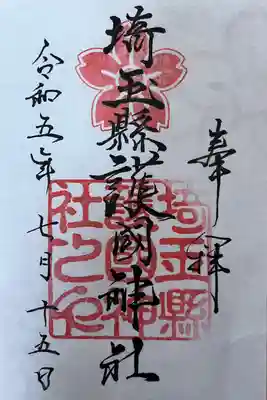 奉拝
埼玉縣護國神社
令和五年七月十五日
埼玉縣
護國神
社之印